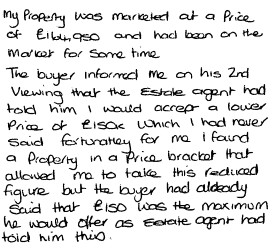 My Property was marketed at a Price
of £164,950 and had been on the
Market for some time
The buyer informed me on his 2nd
Viewing that the Estate agent had
told him I would accept a lower
Price of £150K which I had never
said fortunatley for me I found
a Property in a Price bracket that
allowed me to take this reduced
figure but the buyer had already
said that £150 was the maximum
he would offer as Estate agent had
told him this.